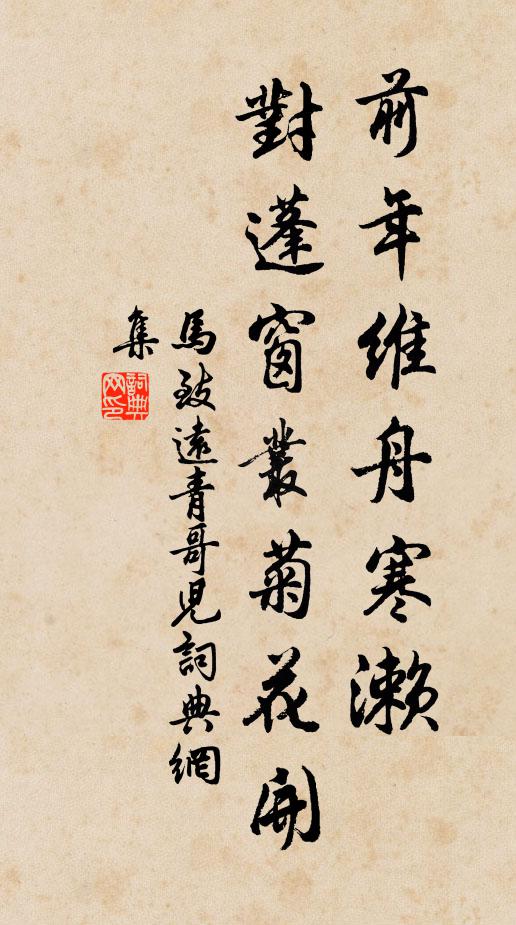 前年維舟寒瀨
對蓬窗叢菊花開
馬致遠青哥兒詞典網
集
詞典
網印